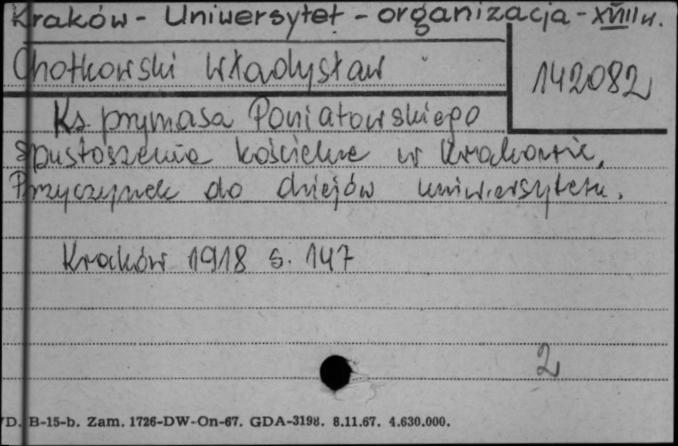 Kraków - Uniwersytet - organizacja - XVIII w.
Chotkowski Władysław
142082
Ks. prymasa Poniatowskiego
spustoszenia kościelne w Krakowie,
Przyczynek do dziejów uniwersytetu.
Kraków 1918 s. 147
2
/D. B-15-b. Zam. 1726-DW-On-67. GDA-3198. 8.11.67. 4.630.000.